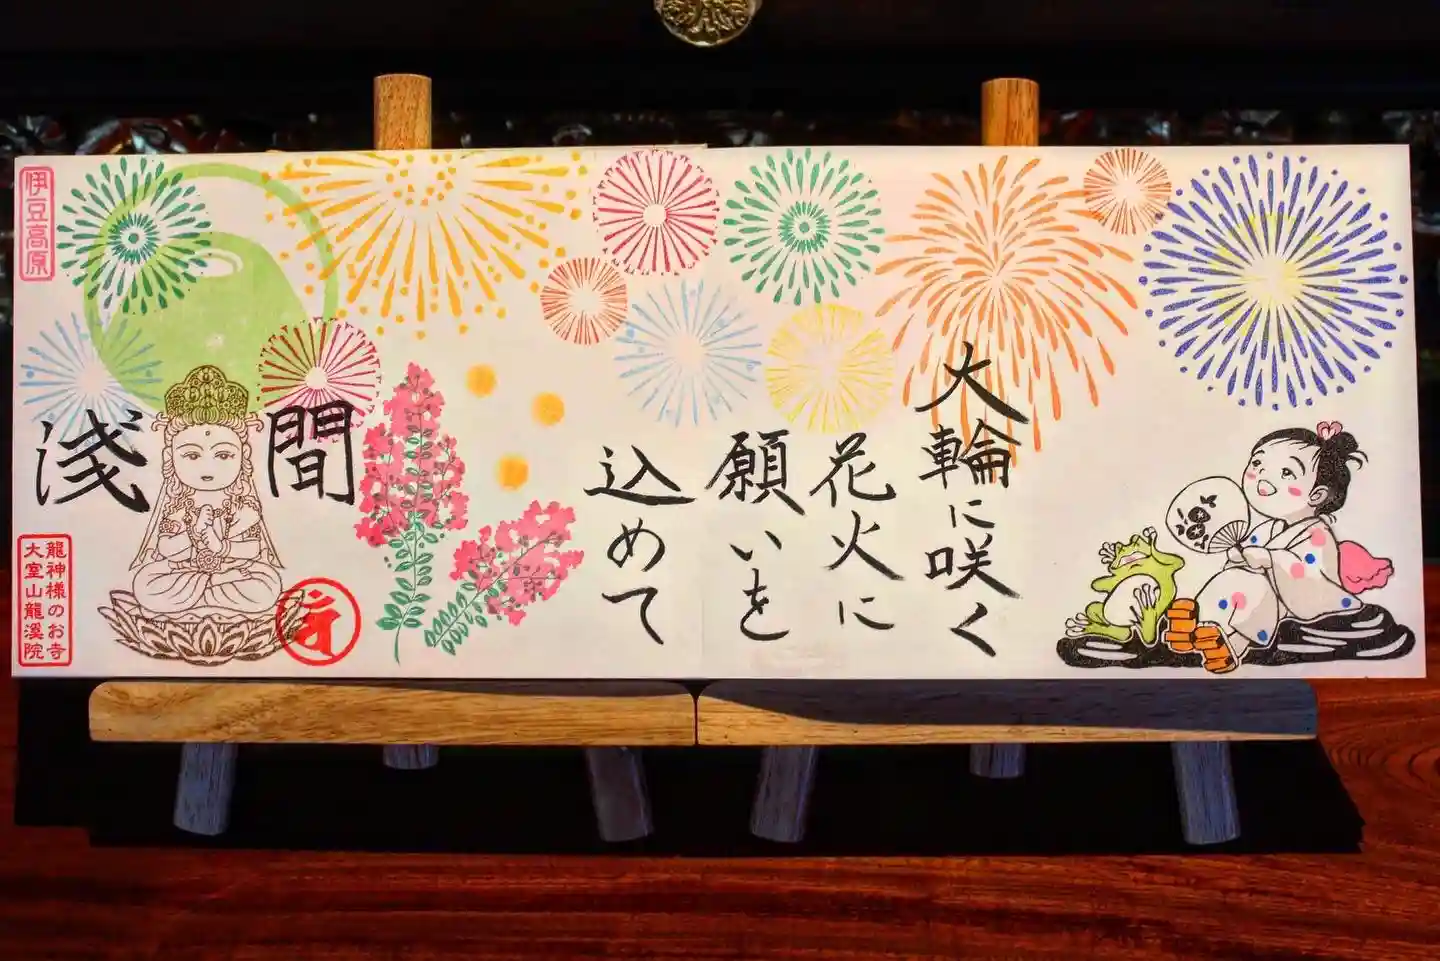 大輪に咲く
花火に
願いを
込めて
浅間
伊豆高原
龍神様のお寺
大室山龍溪院